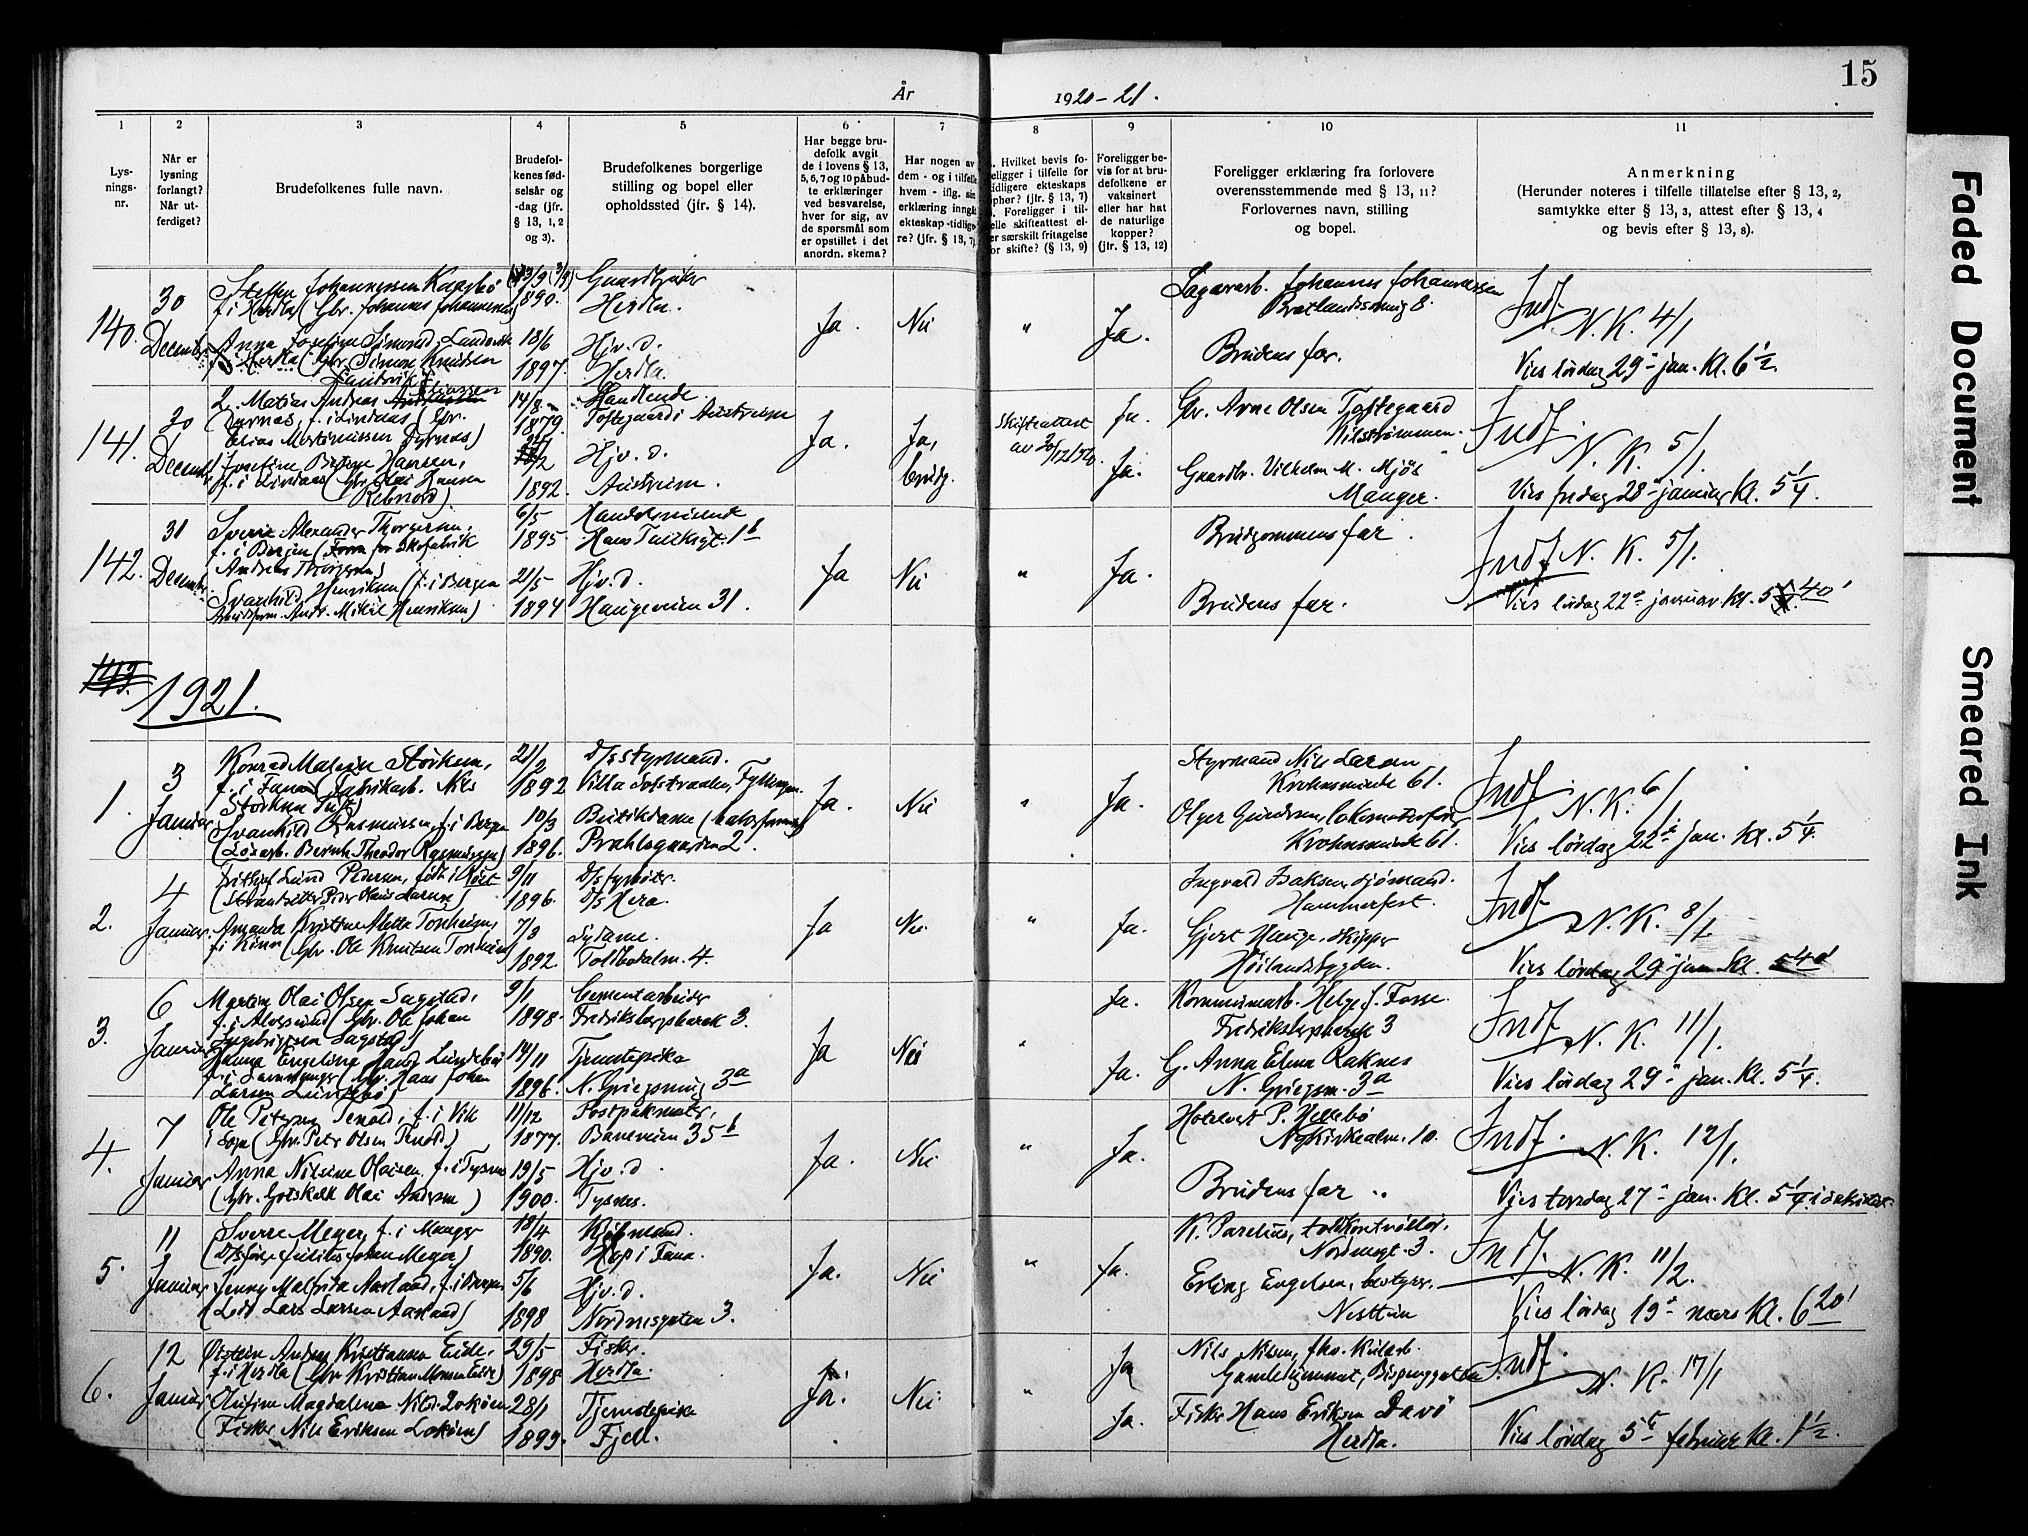 15
År 1920-21.
1 2 3 4 5 6 7 8 9 10 11
Lys-
nings-
nr.
Når er
lysning
forlangt?
Når ut-
ferdiget?
Brudefolkenes fulle navn.
Brudefol-
kenes fød-
selsår og
-dag (jfr.
§ 13, 1, 2
og 3).
Brudefolkenes borgerlige
stilling og bopel eller
opholdssted (jfr. § 14).
Har begge bru-
defolk avgit
de i lovens § 13,
5, 6, 7 og 10 påbud-
te erklæringer
ved besvarelse,
hver for sig, av
de spørsmål som
er opstillet i det
anordn. skema?
Har nogen av
dem - og i tilfelle
hvem - iflg. sin
erklæring inngå
ekteskap tidlige
re? (jfr. § 13, 7)
. Hvilket bevis fo-
eligger i tilfelle for
idligere ekteskaps
phør? (jfr. § 13, 7)
. Foreligger i til-
elle skifteattest el-
er særskilt fritagelse
or skifte? (§ 13, 9)
Foreligger be-
vis for at bru-
defolkene er
vaksinert
eller har hat
de naturlige
kopper?
(jfr. § 13, 12)
Foreligger erklæring fra forlovere
overensstemmende med § 13, 11?
Forlovernes navn, stilling
og bopel.
Anmerkning
(Herunder noteres i tilfelle tillatelse efter § 13, 2,
samtykke efter § 13, 3, attest efter § 13, 4
og bevis efter § 13, 8).
140.
30
Decembr
Steffen Johannessen
f. i Herdla (Gbr. Johannes Johannessen)
Anna Josefine Simonsd.
f. i Herdla (Gbr. Simon Knudsen
890.
18/6
1897.
Gaardbruker
Herdla.
Hjv. d.
Herdla.
Ja. Nei " Ja.
Johannes Johannessen
8.
Brudens far.
Indf.
N. K. 4/1
Vies lørdag 29de jan. Kl. 6 1/2
141.
30
Decembr
Matias Andreas Eliassen
Dyrnes, f. i Lindaas (Gbr.
Elias Martinussen Dyrnes)
Josefine Hansen,
f. i Lindaas (Gbr. Olai Hansen
14/8
1879.
1892.
Handlende
Toftegaard i Austrheim
Hjv. d.
Austrheim.
Ja. Ja, brudg.
Skifteattest
av 20/12/20.
Ja.
Ja.
Gbr. Arne Olsen Toftegaard
Kilstrømmen.
Gaardbr. Vilhelm M. Mjøs
Manger.
Indf.
N. K. 5/1.
Vies fredag 28de januar Kl. 5 1/4.
142.
31
Decembr.
Sverre Alexander Thorgersen,
f. i Bergen (Form. for skofabrik
Andreas Thorgersen)
Svanhild Henriksen (f. i Bergen
Arbeidsform. Andr. Mikal Henriksen)
6/5
1895
21/5
1894
Handelsreisende
Hans Tanksgt. 1b
Hjv. d.
Haugeveien 31.
Ja Nei " Ja.
Brudgommens far.
Brudens far.
Indf. N. K. 5/1.
Vies lørdag 22de januar Kl. 5 40
143.
1921.
1.
3
Januar
Konrad Støtksen,
f. i Fane (Fabrikarb. Nils
Svanhild Rasmussen, f. i Bergen
(Løsarb. Bernh. Theodor Rasmussen)
21/2
1892
10/3
1896.
D/S Styrmand.
Villa Solstraalen, Fyllingen.
Butikdame
Prahlsgaarden 2.
Ja. Nei " Ja.
Styrmand Nils Larsen
Krohnsminde 61.
Olger Gundersen, lokomotivfører
Krohnsminde 61.
Indf. N. K. 6/1
Vies lørdag 22de jan. Kl. 5 1/4.
2.
4
Januar.
Fritjof Lund Pedersen, født i
(Strandsitter Peder Olaus Larsen)
Amanda Kristine Aletta Tonheim
f. i Kinn (Gbr. Ole Knutsen Tonheim)
9/11
1896.
7/8
1892.
D/S fyrbøter.
D/S Hera.
Sydame.
Tolbodalm. 4.
Ja Nei " Ja.
Ingvald Isaksen, sjømand.
Hammerfest.
Gjert Hauge, skipper
Høilandsbygden.
Indf.
N. K. 8/1
Vies lørdag 29de jan. Kl. 5 40
3.
6
Januar
Martin Olai Olsen Sagstad,
f. i Alversund (Gbr. Ole Johan
Ingebrigtsen Sagstad)
Engeline Hansd. Lundebø
(Gbr. Hans Johan
Larsen Lundebø)
9/1
1898.
14/11
1896.
Cementarbeider
Fredriksbergsbarak 3.
Tjenestepike
N. Griegsmug 3a
Ja Nei " Ja.
Ja.
Kommunearb. Helge J. Fosse.
Fredriksbergsbarak 3
G. Anna Elena Raknes
N. Griegsm. 3a
Indf.
N. K. 11/1.
Vies lørdag 29de jan. Kl. 5 1/4.
4.
7
Januar
Ole Petersen Tenold, f. i Vik
i Sogn (Gbr. Peter Olsen Tenold)
Anna Nilsine Olaisen. f. i Tysnes
(Gbr. Gotskalk Olai Andersen)
11/12
1877.
19/5
1900.
Postpakmester,
Baneveien 35b
Hjv. d.
Tysnes.
Ja. Nei " Ja.
Hotelvert P. Hellebø
Nykirkealm. 10.
Brudens far
Indf.
N. K. 12/1.
Vies torsdag 27de jan. Kl. 5 1/4 i sakristiet.
5.
11
Januar
Sverre Meyer, f. i Manger
(D/S fører Julius Johan Meyer)
Jenny Malfrida Aarland, f. i Bergen
(Lods Lars Larsen Aarland)
18/4
1890.
5/6
1898
Kjøbmand.
Hop i Fana.
Hjv. d.
Nordnesgaten 3.
Ja. Nei " Ja.
K. Parelius, toldkontrollør.
Nordnesgt. 3.
Erling Engelsen, bestyrer.
Nesttun
Indf.
N. K. 11/2.
Vies lørdag 19de mars Kl. 6 20
6.
12
Januar
Øistein Andreas Kristiansen Eide,
f. i Herdla (Gbr. Kristian Monsen Eide)
Olufine Magdalena Nilsd. Lokøen
(Fisker Nils Eriksen Lokøen)
29/5
1898
28/1
1899.
Fisker.
Herdla.
Tjenestepike
Fjell.
Ja. Nei " Ja
Ja.
Nils Nilsen, fho. Kularb.
Gamlehjemmet,
Fisker Hans Eriksen Davø
Herdla.
Indf.
N. K. 17/1
Vies lørdag 5te februar Kl. 1 1/2.
Faded Document
Smeared Ink